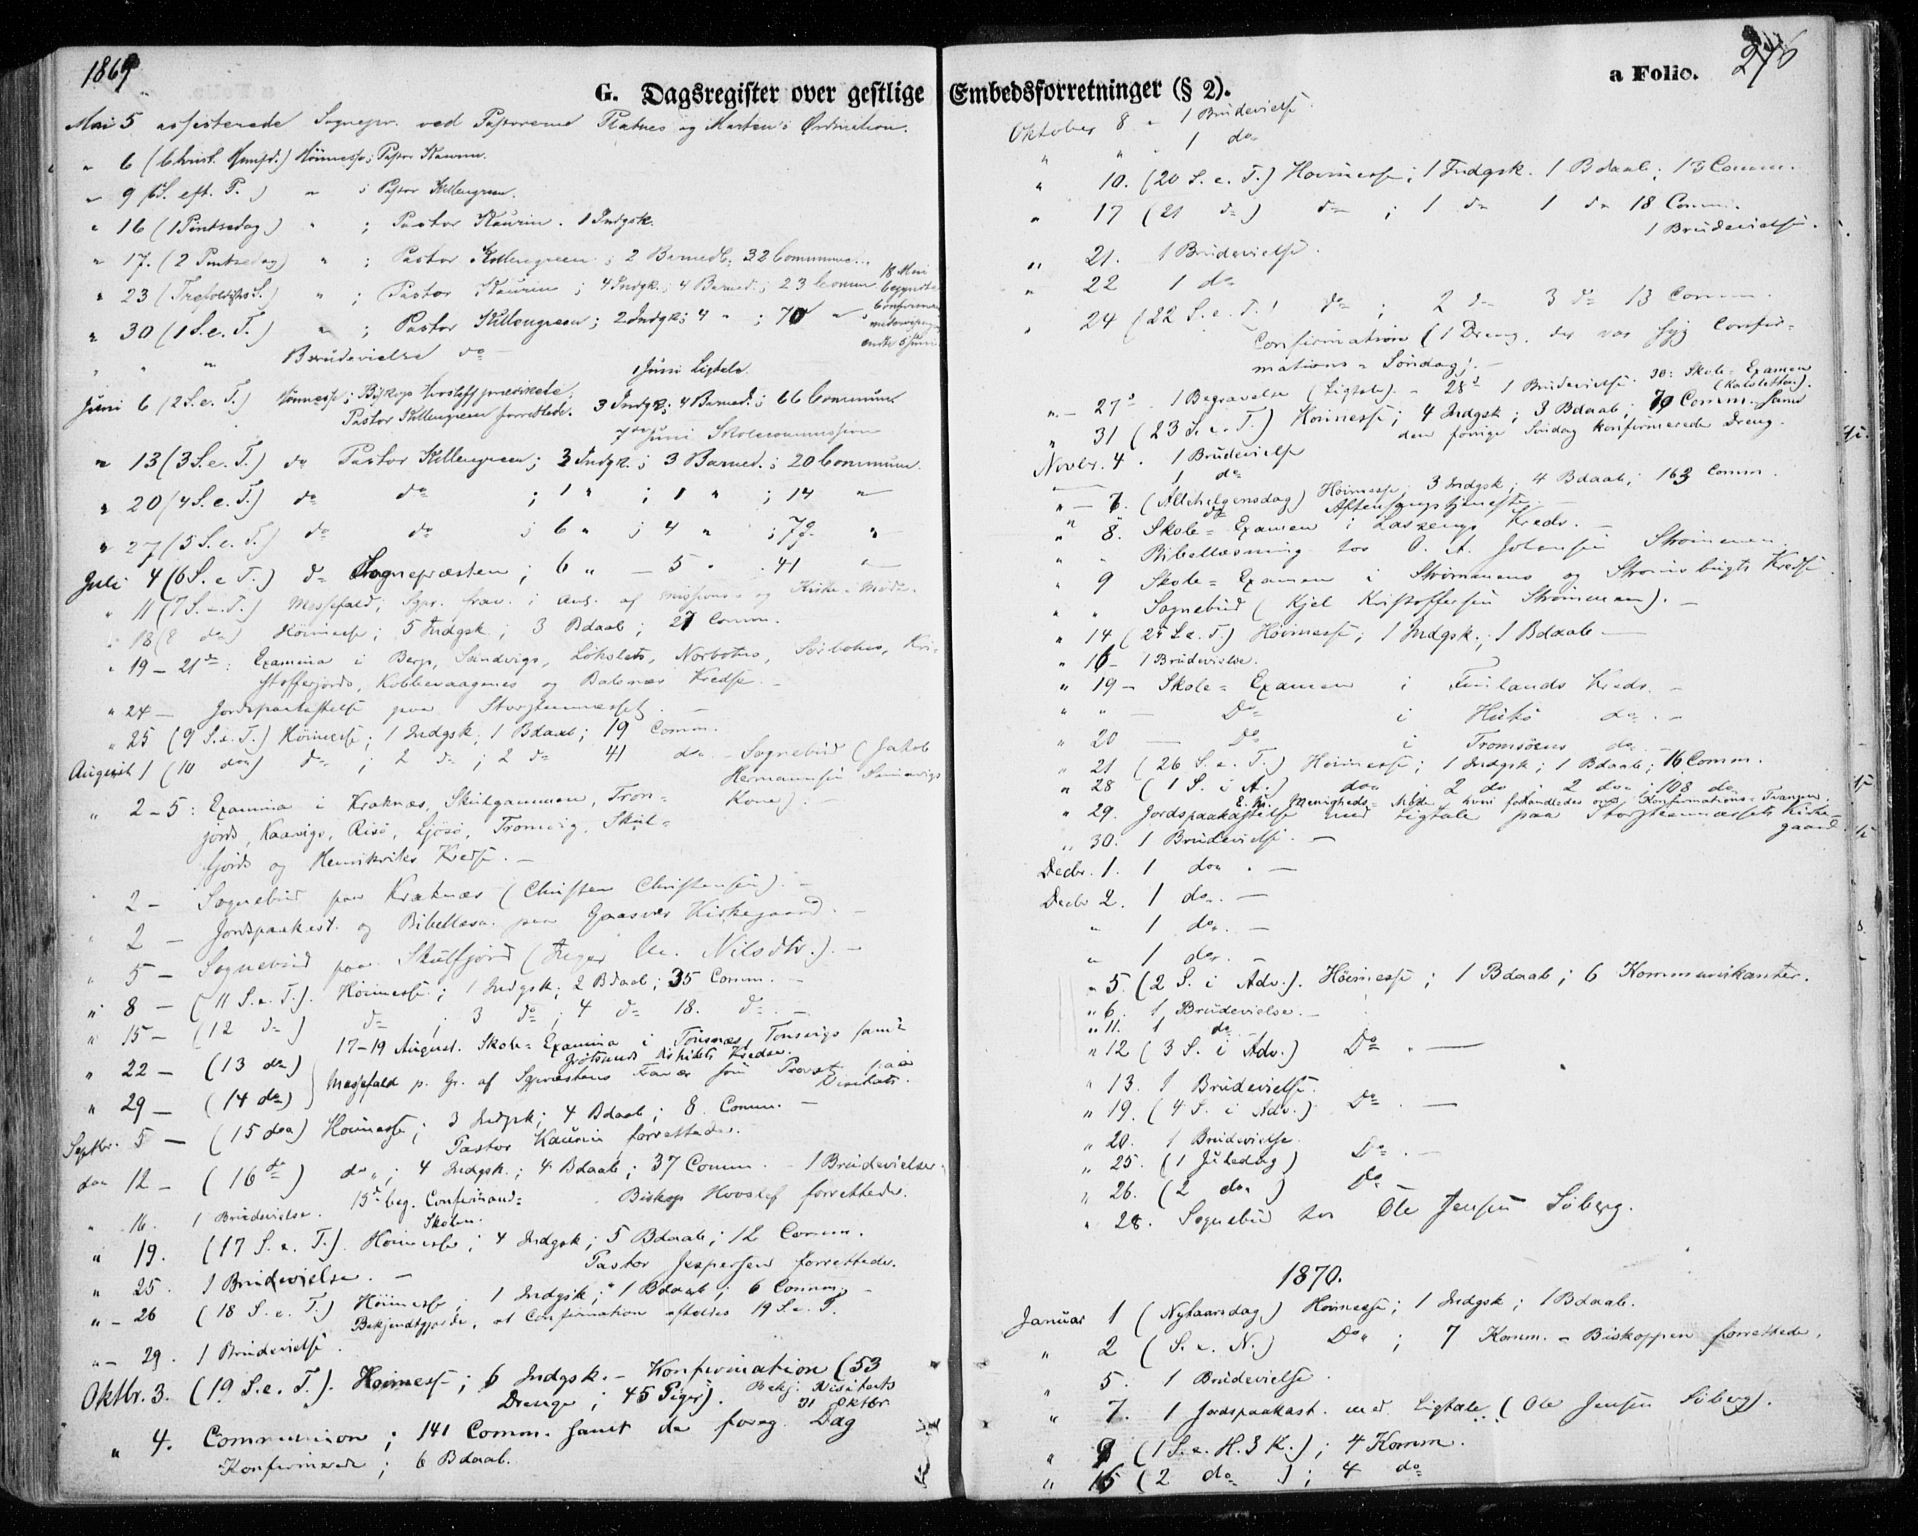 1869
G. Dagsregister over gestlige Embedsforretninger (§ 2).
a Folio. 276
Mai 5 assisterede Sognepr. ved Pastorerne og Ordination.
" 6 (Christ. Himfd.) Höimesse; Pastor Kaurin.
" 9 (6 S. eft. P.) " ; Pastor Killengreen.
" 16 (1 Pintsedag) " ; Pastor Kaurin. 1 Indgsk.
" 17. (2 Pintsedag) " ; Pastor Killengreen; 2 Barnedb. 32 Commun.
" 23 (Trefoldigheds S.) " ; Pastor Kaurin; 4 Indgk; 4 Barned.; 23 Comm
18 Mai begyndte Confirmand
" 30 (1 S. e. T.) " ; Pastor Killengreen; 2 Indgk; 4 " ; 70 "
endte 5 Juni
" " " Brudevielse do
1 Juni Ligtale
Juni 6 (2 S. e. T.) Höimesse; Biskop Hvoslef prædikede, Pastor Killengreen forrettede. 3 Indgk; 4 Barned.; 66 Commun
7de Juni Skolecommission
" 13 (3 S. e. T.) do Pastor Killengreen; 3 Indgk.; 3 Barned.; 20 Commun.
" 20 (4 S. e. T.) do do ; 1 " ; 1 " ; 14 "
" 27 (5 S. e. T.) do do ; 6 " ; 4 " ; 72 "
Juli 4 (6 S. e. T.) do Sognepræsten; 6 " - 5 " . 41 "
" 11 (7 S. e. T.) Messefald, Sgpr. frav. i Anl. af Missions- og Kirke-Møde.
" 18 (8 do) Höimesse; 5 Indgsk; 3 Bdaab; 27 Comm.
" 19 - 21de: Examina i Berg, Sandvigs, Lökslets, Norbotns, Sörbotns, Kri-
stofferjords, Kobbevaagenes og Balsnes Kredse. -
" 24 - Jordspaakastelse paa Storsteinnesset. -
" 25 (9 S. e. T.) Höimesse; 1 Indgsk. 1 Bdaab; 19 Comm.
August 1 (10 do) do ; 2 do ; 2 do 41 do - Sognebud (Jakob
Hermannsen
Kone).
" 2-5: Examina i Kraknæs, Skulgammen, Trom-
jords, Kaavigs, Risö, Ljösö, Tromvig, Skul-
fjords og Henrikviks Kredse. -
" 2 - Sognebud paa Kraknæs (Christen Christensen). -
" 2 - Jordspaakast. og Bibellæsn. paa Gaasvær Kirkegaard. -
" 5 - Sognebud paa Skulfjord (Inger An. Nilsdtr.). -
" 8 - (11 S. e. T.). Höimesse; 1 Indgsk; 2 Bdaab; 35 Comm. -
" 15 - (12 do) do ; 3 do ; 4 do 18. do -
17-19 August. Skole-Examina i Tönsnæs, Tonsvigs samt
" 22 - (13 do) Messefald p. Gr. af Sgpræstens Fravær som Provst paa
" 29 - (14 do) Visitats.
Septbr. 5 - (15 do) Höimesse; 3 Indgsk; 4 Bdaab; 8 Comm. -
Pastor Kaurin forrettede.
do 12 - (16 do) do; 4 Indgsk.; 4 Bdaab; 37 Comm. - 1 Brudevielse.
Biskop Hvoslef forrettede.
" 16. 1 Brudevielse. 15de beg. Confirmand-
Skolen.
" 19. (17 S. e. T.). Höimesse; 4 Indgsk; 5 Bdaab; 12 Comm.
Pastor Jespersen forrettede.
" 25. 1 Brudevielse. -
" - 26 (18 S. e. T.) Höimesse; 1 Indgsk; 1 Bdaab; 6 Comm. -
Bekjendtgjorde, at Confirmation afholdes 19 S. e. T.
" - 29. 1 Brudevielse.
Oktbr. 3. (19 S. e. T.). Höimesse; 6 Indgsk. - Konfirmation (53
Drenge; 45 Piger). Bekj. Visitats
31 Oktbr
" 4. Communion; 141 Comm. samt de foreg. Dag
Konfirmerede; 6 Bdaab.
Oktober 8 - 1 Brudevielse
" " - 1 do
" 10. (20 S. e. T.) Höimesse; 1 Indgsk. 1 Bdaab; 13 Comm.
" 17 (21 do) do ; 1 do 1 do 18 Comm.
1 Brudevielse.
" 21. 1 Brudevielse.
" 22 1 do
" 24 (22 S. e. T.) do ; 2 do 3 do 13 Comm.
Confirmation (1 Dreng, der var syg Confir-
mations-Söndag). -
" - 27de 1 Begravelse (Ligtale). - 28de 1 Brudevielse. 30: Skole-Examen
(Kalsletten).
" 31 (23 S. e. T.) Höimesse; 4 Indgsk; 3 Bdaab; 79 Comm. samt
den forrige Söndag konfirmerede Dreng.
Novbr. 4. 1 Brudevielse
1 do
" - 7. (Allehelgensdag) Höimesse. 3 Indgsk; 4 Bdaab; 163 Comm.
do Aftensangstjeneste. -
" 8. Skole-Examen i Kreds. -
" " Bibellæsning hos O. A. Johansen Strömmen.
" 9 Skole-Examen i Strömmens og Strömsbugts Kredse.
" " Sognebud (Kjel Kristoffersen Strömmen). -
" 14 (25 S. e. T.) Höimesse; 1 Indgsk; 1 Bdaab -
" 16 - 1 Brudevielse.
" 19 - Skole-Examen i Finlands Kreds. -
" " - Do i do. -
" 20 - Do i Tromsöens do. -
" 21 (26 S. e. T.) Höimesse; 1 Indgsk; 1 Bdaab; 16 Comm.
" 28 (1 S. i A.) do ; 2 do 2 do ; 108 do
E. M. Menigheds-Møde, hvori forhandledes om Konfirmations-Tvangen.
" 29. Jordspaakastelse med Ligtale paa Storsteinnessets Kirke-
gaard.
" 30. 1 Brudevielse. -
Decbr. 1. 1 do. -
Decbr 2. 1 do. -
" 1 do. -
" 1 do. -
" 5. (2 S. i Adv.). Höimesse; 1 Bdaab; 6 Kommunikanter.
" 6. 1 Brudevielse. -
" 11. 1 do
" 12 (3 S. i Adv.) Do. -
" 13. 1 Brudevielse.
" 19. (4 S. i Adv.) Do. -
" 20. 1 Brudevielse.
" 25. (1 Juledag) Do. -
" 26. (2 do) Do
" 28. Sognebud hos Ole Jensen Söberg.
1870.
Januar 1 (Nytaarsdag) Höimesse; 1 Indgsk; 1 Bdaab.
" 2 (S. e. N.) Do; 7 Komm. - Biskoppen forrettede.
" 5. 1 Brudevielse.
" 7. 1 Jordspaakast. med Ligtale (Ole Jensen Söberg).
" 9 (1 S. e. H. 3 K.); 4 Komm.
" 16 (2 do); 4 do